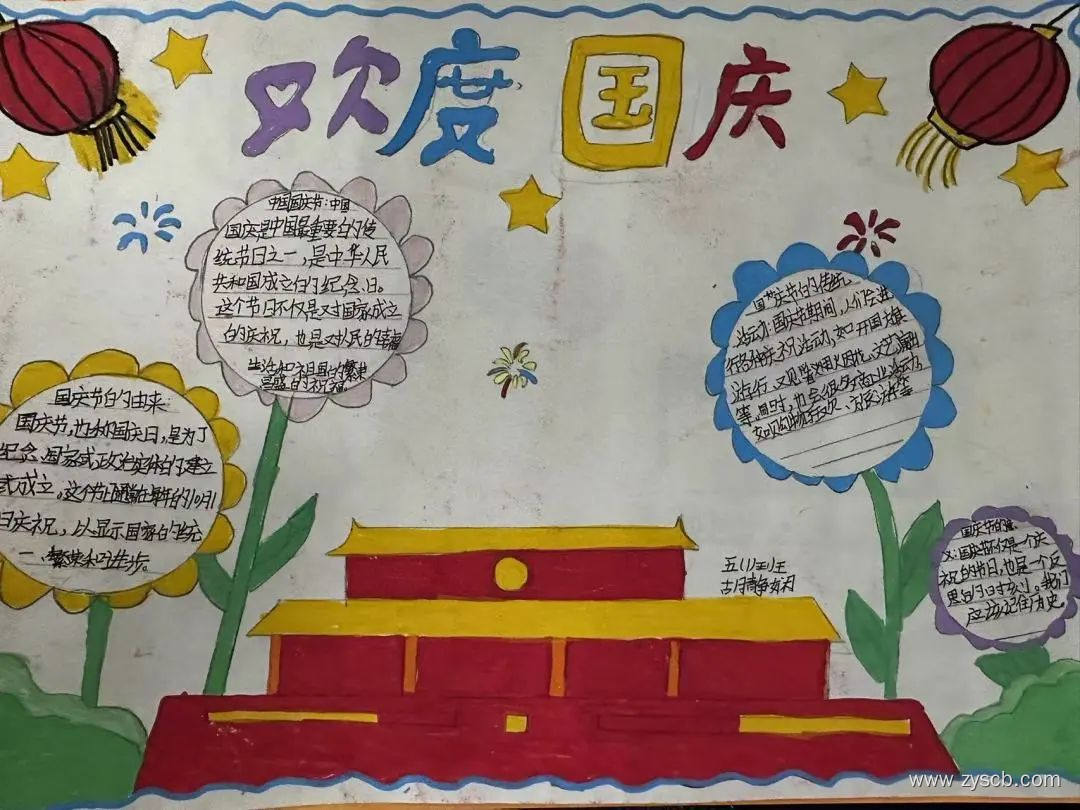 欢度国庆
中国国庆节：中国
国庆是中国最重要的传
统节日之一，是中华人民
共和国成立的纪念日。
这个节日不仅是对国家成立
的庆祝，也是对人民的幸福
生活和祖国的繁荣
昌盛的祝福
国庆节的由来
国庆节，也称国庆日，是为了
纪念国家或政治实体的建立
或成立。这个节日通常在每年的10月1
日庆祝，以显示国家的统
一、繁荣和进步。
国庆节的传统
活动：国庆节期间，人们会进
行各种庆祝活动，如升国旗
游行、观看烟火、文艺演出
等。同时，也会很多商业活动
如购物狂欢、
国庆节的意
义：国庆节不仅是一个庆
祝的节日，也是一个反
思的时刻。我们
应该记住历史。
五(1)班
胡静
www.zyscb.com